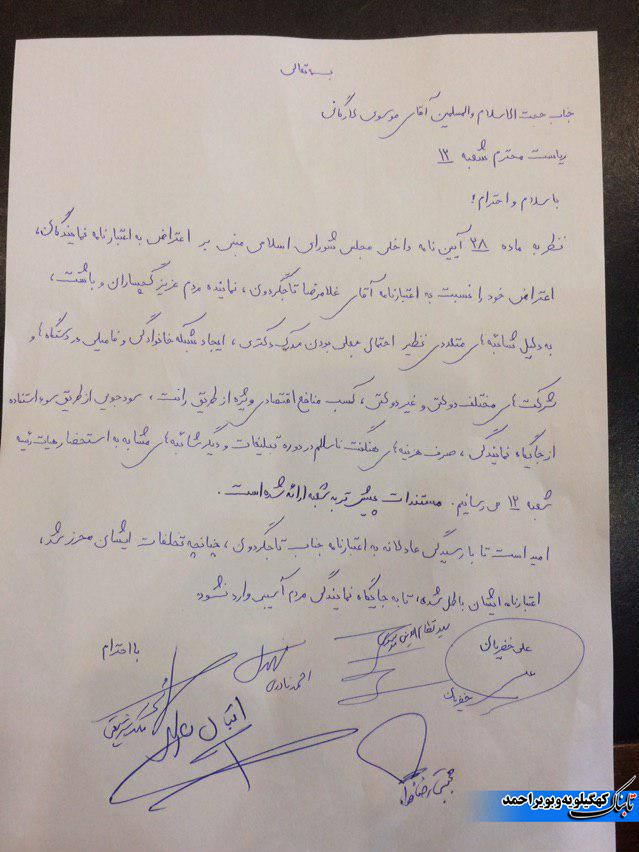 بسمه تعالی
جناب حجت الاسلام والمسلمین آقای موسوی لارگانی
ریاست محترم شعبه ۱۲
باسلام و احترام؛
نظر به ماده ۲۸ آیین نامه داخلی مجلس شورای اسلامی مبنی بر اعتراض به اعتبارنامه نمایندگان،
اعتراض خود را نسبت به اعتبارنامه آقای غلامرضا تاجگردون، نماینده مردم عزیز گچساران و باشت،
به دلیل شائبه های متعددی نظیر احتمال جعلی بودن مدرک دکتری، ایجاد شبکه خانوادگی و فامیلی در دستگاه ها و
شرکت های مختلف دولتی و غیر دولتی، کسب منافع اقتصادی ویژه از طریق رانت، سودجویی از طریق سوء استفاده
از جایگاه نمایندگی، صرف هزینه های هنگفت ناسالم در دوره تبلیغات و دیگر شائبه های مشابه به استحضار هیات رئیسه
شعبه ۱۲ می رسانیم. مستندات پیش تر به شعبه ارائه شده است.
امید است تا با رسیدگی عادلانه به اعتبارنامه جناب تاجگردون، چنانچه تخلفات ایشان محرز شد،
اعتبارنامه ایشان باطل شده، تا به جایگاه نمایندگی مردم آسیبی وارد نشود
با احترام
علی خضریان
علی خضریان
سید نظام الدین موسوی
احمد نادری
مالک شریعتی
اقبال
مجتبی رضاخواه
تابناک کهگیلویه و بویراحمد